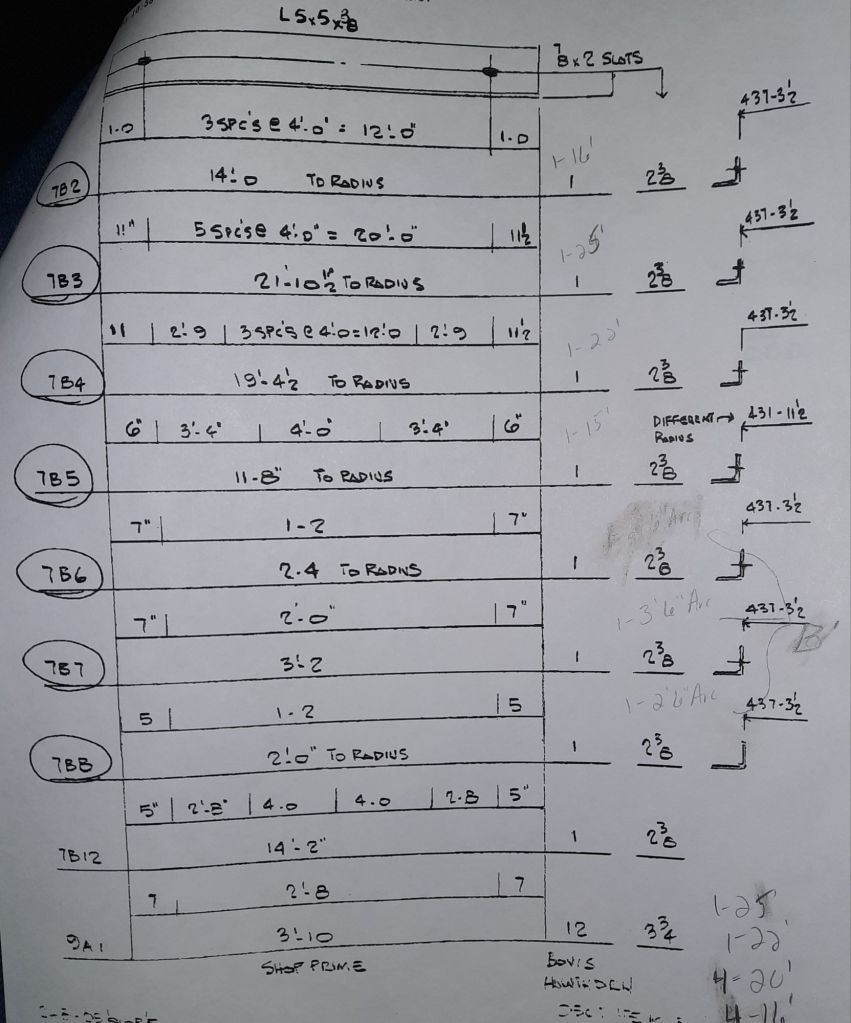 L 5x5x3/8
7/8 x 2 SLOTS
437-3 1/2
1-0 3 SPC'S @ 4'-0" = 12'-0" 1-0
1-16'
7B2 14'-0 TO RADIUS 1 2 3/8
437-3 1/2
11" 5 SPC'S @ 4'-0" = 20'-0" 11 1/2
1-25'
7B3 21'-10 1/2" TO RADIUS 1 2 3/8
437-3 1/2
11 2'-9 3 SPC'S @ 4'-0=12'-0 2'-9 11 1/2
1-22'
7B4 19'-4 1/2 TO RADIUS 1 2 3/8
6" 3'-4" 4'-0" 3'-4" 6"
1-15'
DIFFERENT → 431-11 1/2
RADIUS
7B5 11-8" TO RADIUS 1 2 3/8
437-3 1/2
7" 1-2 7"
Arc
7B6 2-4 TO RADIUS 1 2 3/8
7" 2'-0" 7"
1-3'6" Arc
437-3 1/2
7B7 3'-2 1 2 3/8
5 1-2 5
1-2'6" Arc
437-3 1/2
7B8 2'-0" TO RADIUS 1 2 3/8
5" 2'-8" 4-0 4-0 2-8 5"
7B12 14'-2" 1 2 3/8
7 2'-8 7
9A1 3'-10 12 3 3/4
SHOP PRIME
BOVIS
1-25'
1-22'
4-20'
4-16'